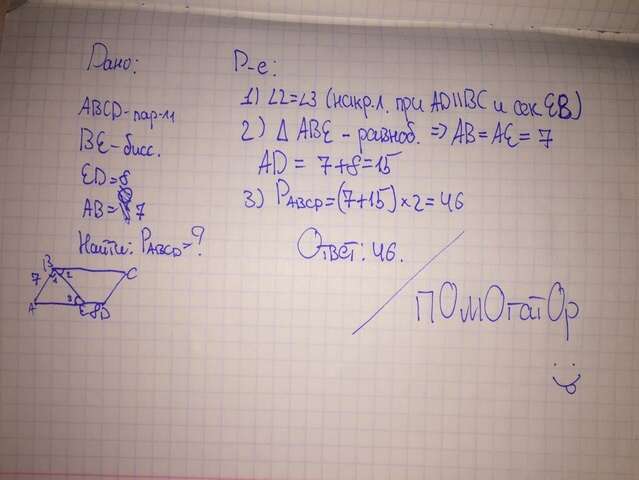 Дано:
ABCD - пар-м
BE - бисс.
ED = 8
AB = 7
Найти: P ABCD = ?
B
7
1
2
C
A
3
E
8
D
Р-е:
1) ∠2=∠3 (накр.л. при AD||BC и сек EB)
2) Δ ABE - равноб. ⇒ AB = AE = 7
AD = 7+8=15
3) P ABCD = (7+15)×2=46
Ответ: 46.
ПОмОгатОр